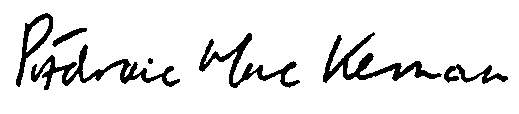 Pádraic Mac Kernan